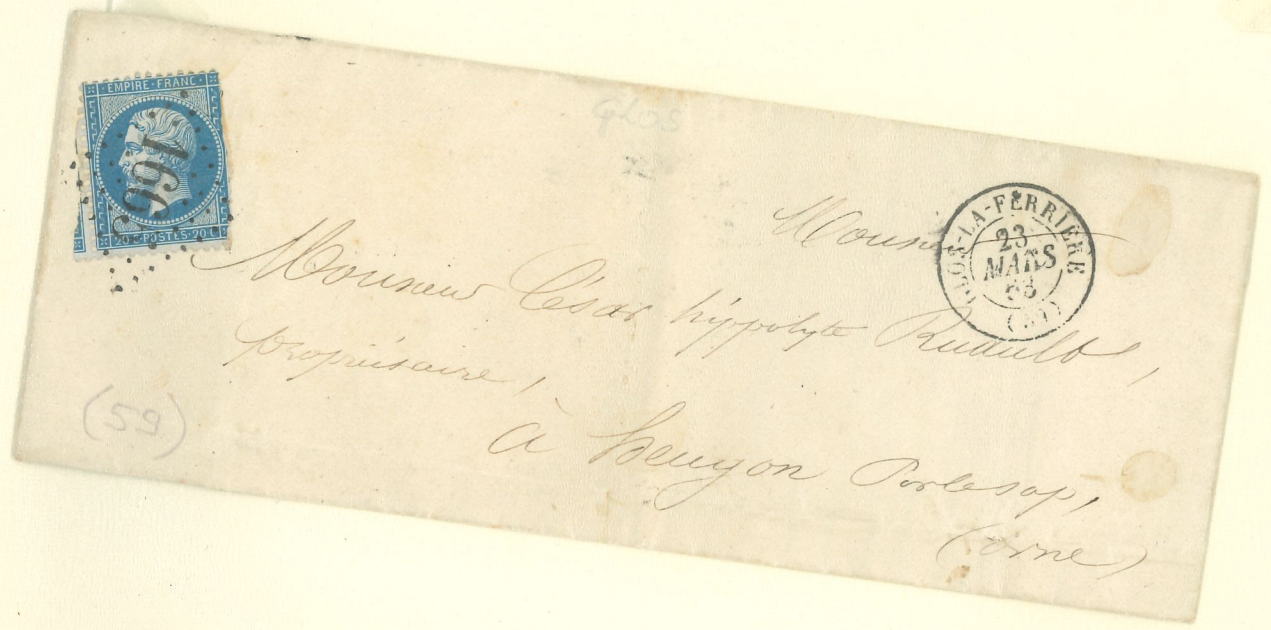 EMPIRE · FRANC ·
1663
20 c · POSTES · 20 c
GLOS
GLOS-LA-FERRIERE
23
MARS
63
(59)
Monsieur
Monsieur César hippolyte Ruault,
propriétaire,
à heugon Par le sap,
(orne)
(59)